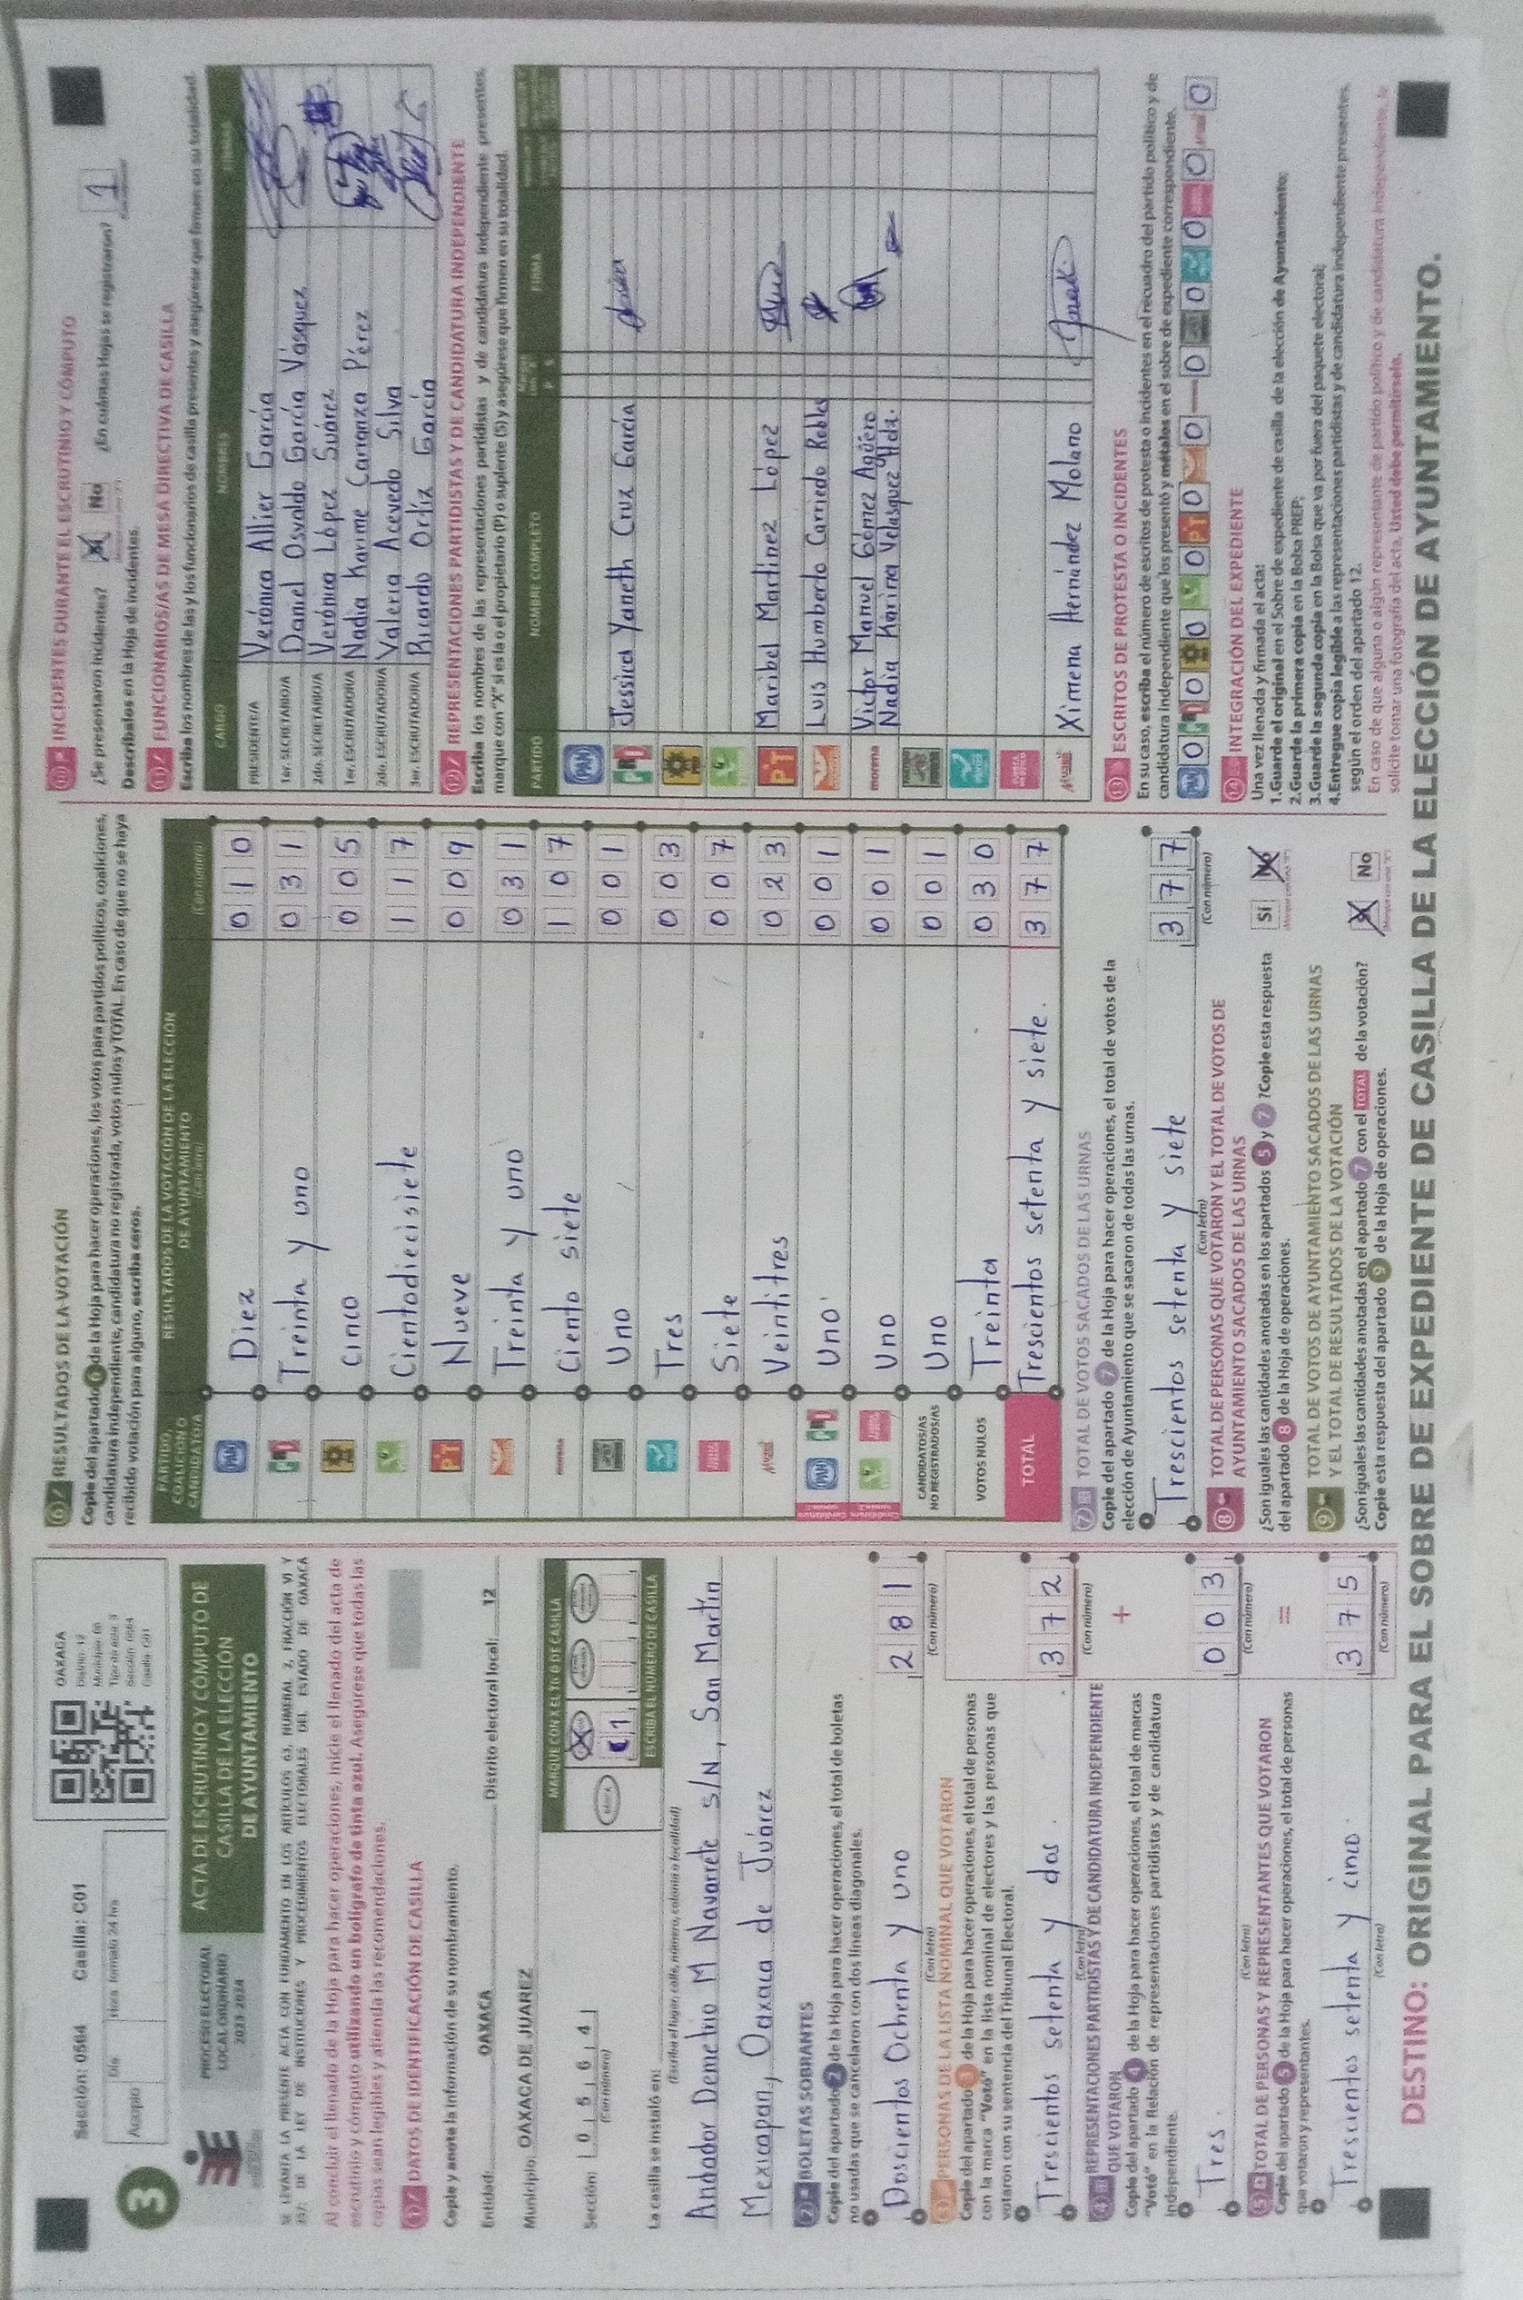 3
Sección: 0564 Casilla: C01
Acopio Día Hora formato 24 hrs
OAXACA
Distrito: 12
Sección: 0564
Casilla: C01
PROCESO ELECTORAL
LOCAL ORDINARIO
2023-2024
ACTA DE ESCRUTINIO Y CÓMPUTO DE
CASILLA DE LA ELECCIÓN
DE AYUNTAMIENTO
SE LEVANTA LA PRESENTE ACTA CON FUNDAMENTO EN LOS ARTÍCULOS 63, NUMERAL 2, FRACCIÓN VI Y
257; DE LA LEY DE INSTITUCIONES Y PROCEDIMIENTOS ELECTORALES DEL ESTADO DE OAXACA
Al concluir el llenado de la Hoja para hacer operaciones, inicie el llenado del acta de
escrutinio y cómputo utilizando un bolígrafo de tinta azul. Asegúrese que todas las
copias sean legibles y atienda las recomendaciones.
1 DATOS DE IDENTIFICACIÓN DE CASILLA
Copie y anote la información de su nombramiento.
Entidad: OAXACA Distrito electoral local: 12
Municipio: OAXACA DE JUAREZ
Sección: 0 5 6 4
(Con número)
MARQUE CON X EL TIPO DE CASILLA
BÁSICA
1
ESCRIBA EL NÚMERO DE CASILLA
La casilla se instaló en:
(Escriba el lugar; calle, número, colonia o localidad)
Andador Demetrio M Navarrete S/N, San Martín
Mexicapan, Oaxaca de Juárez
2 BOLETAS SOBRANTES
Copie del apartado 2 de la Hoja para hacer operaciones, el total de boletas
no usadas que se cancelaron con dos líneas diagonales.
Doscientos Ochenta y uno 2 8 1
(Con letra) (Con número)
3 PERSONAS DE LA LISTA NOMINAL QUE VOTARON
Copie del apartado 3 de la Hoja para hacer operaciones, el total de personas
con la marca "Votó" en la lista nominal de electores y las personas que
votaron con su sentencia del Tribunal Electoral.
Trescientos setenta y dos. 3 7 2
(Con letra) (Con número)
4 REPRESENTACIONES PARTIDISTAS Y DE CANDIDATURA INDEPENDIENTE
QUE VOTARON
+
Copie del apartado 4 de la Hoja para hacer operaciones, el total de marcas
"Votó" en la Relación de representaciones partidistas y de candidatura
independiente.
Tres. 0 0 3
(Con letra) (Con número)
5 TOTAL DE PERSONAS Y REPRESENTANTES QUE VOTARON
=
Copie del apartado 5 de la Hoja para hacer operaciones, el total de personas
que votaron y representantes.
Trescientos setenta y cinco. 3 7 5
(Con letra) (Con número)
6 RESULTADOS DE LA VOTACIÓN
Copie del apartado 6 de la Hoja para hacer operaciones, los votos para partidos políticos, coaliciones,
candidatura independiente, candidatura no registrada, votos nulos y TOTAL. En caso de que no se haya
recibido votación para alguno, escriba ceros.
PARTIDO,
COALICIÓN O
CANDIDATO/A
RESULTADOS DE LA VOTACIÓN DE LA ELECCIÓN
DE AYUNTAMIENTO
(Con letra) (Con número)
PAN Diez 0 1 0
PRI Treinta y uno 0 3 1
Cinco 0 0 5
Cientodiecisiete 1 1 7
PT Nueve 0 0 9
Treinta y uno 0 3 1
morena Ciento siete 1 0 7
Uno 0 0 1
Tres 0 0 3
Siete 0 0 7
Veintitres 0 2 3
PAN PRI Uno 0 0 1
Uno 0 0 1
CANDIDATOS/AS
NO REGISTRADOS/AS
Uno 0 0 1
VOTOS NULOS Treinta 0 3 0
TOTAL Trescientos setenta y siete. 3 7 7
7 TOTAL DE VOTOS SACADOS DE LAS URNAS
Copie del apartado 7 de la Hoja para hacer operaciones, el total de votos de la
elección de Ayuntamiento que se sacaron de todas las urnas.
Trescientos setenta y siete 3 7 7
(Con letra) (Con número)
8 TOTAL DE PERSONAS QUE VOTARON Y EL TOTAL DE VOTOS DE
AYUNTAMIENTO SACADOS DE LAS URNAS
¿Son iguales las cantidades anotadas en los apartados 5 y 7 ?Copie esta respuesta
del apartado 8 de la Hoja de operaciones.
Sí No
9 TOTAL DE VOTOS DE AYUNTAMIENTO SACADOS DE LAS URNAS
Y EL TOTAL DE RESULTADOS DE LA VOTACIÓN
¿Son iguales las cantidades anotadas en el apartado 7 con el TOTAL de la votación?
Copie esta respuesta del apartado 9 de la Hoja de operaciones.
Sí No
10 INCIDENTES DURANTE EL ESCRUTINIO Y CÓMPUTO
¿Se presentaron incidentes? Sí No ¿En cuántas Hojas se registraron? 1
Descríbalos en la Hoja de incidentes.
11 FUNCIONARIOS/AS DE MESA DIRECTIVA DE CASILLA
Escriba los nombres de las y los funcionarios de casilla presentes y asegúrese que firmen en su totalidad.
CARGO NOMBRES FIRMAS
PRESIDENTE/A Verónica Allier García
1er. SECRETARIO/A Daniel Osvaldo García Vásquez
2do. SECRETARIO/A Verónica López Suárez
1er. ESCRUTADOR/A Nadia Karime Carranza Pérez
2do. ESCRUTADOR/A Valeria Acevedo Silva
3er. ESCRUTADOR/A Ricardo Ortíz García
12 REPRESENTACIONES PARTIDISTAS Y DE CANDIDATURA INDEPENDIENTE
Escriba los nombres de las representaciones partidistas y de candidatura independiente presentes,
marque con "X" si es la o el propietario (P) o suplente (S) y asegúrese que firmen en su totalidad.
PARTIDO NOMBRE COMPLETO P S FIRMA
PAN
PRI Jessica Yaneth Cruz García
PT Maribel Martínez López
Luis Humberto Carriedo Robles
morena Victor Manuel Gómez Agüero
Nadia Karina Velasquez Hdz.
Ximena Hernández Molano
13 ESCRITOS DE PROTESTA O INCIDENTES
En su caso, escriba el número de escritos de protesta o incidentes en el recuadro del partido político y de
candidatura independiente que los presentó y métalos en el sobre de expediente correspondiente.
PAN 0 PRI 0 0 0 PT 0 0 0 0 0 0 0
14 INTEGRACIÓN DEL EXPEDIENTE
Una vez llenada y firmada el acta:
1.Guarde el original en el Sobre de expediente de casilla de la elección de Ayuntamiento;
2.Guarde la primera copia en la Bolsa PREP;
3.Guarde la segunda copia en la Bolsa que va por fuera del paquete electoral;
4.Entregue copia legible a las representaciones partidistas y de candidatura independiente presentes,
según el orden del apartado 12.
En caso de que alguna o algún representante de partido político y de candidatura independiente, le
solicite tomar una fotografía del acta, Usted debe permitírselo.
DESTINO: ORIGINAL PARA EL SOBRE DE EXPEDIENTE DE CASILLA DE LA ELECCIÓN DE AYUNTAMIENTO.